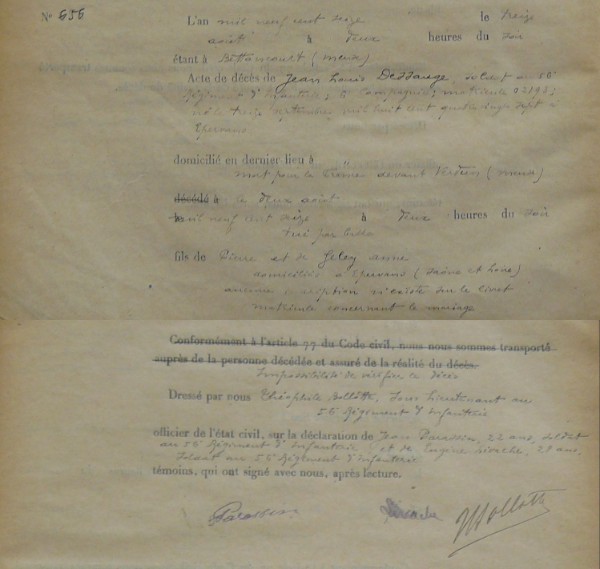 Nº 656 L'an mil neuf cent seize le treize
août à deux heures du soir
étant à Béthincourt (Meuse)
Acte de décès de Jean Louis Dessauge, soldat au
Régiment d'Infanterie; Compagnie; matricule
né le treize septembre mil huit cent quatre vingt sept à
Epervans
domicilié en dernier lieu à
mort pour la France devant Verdun (Meuse)
décédé à le deux août
mil neuf cent seize à deux heures du soir
tué par
fils de Pierre et de Geley Anne
domiciliés à Epervans (Saône et Loire)
aucune inscription n'existe sur le livret
matricule concernant le mariage
Conformément à l'article 77 du Code civil, nous nous sommes transporté
auprès de la personne décédée et assuré de la réalité du décès.
Impossibilité de vérifier le décès
Dressé par nous Théophile Bollotte, Sous Lieutenant au
56 Régiment d'Infanterie
officier de l'état civil, sur la déclaration de Jean Parassin, 22 ans, soldat
au 56 Régiment d'Infanterie et de Eugène 29 ans,
soldat au 56 Régiment d'Infanterie
témoins, qui ont signé avec nous, après lecture.
Parassin Bollotte